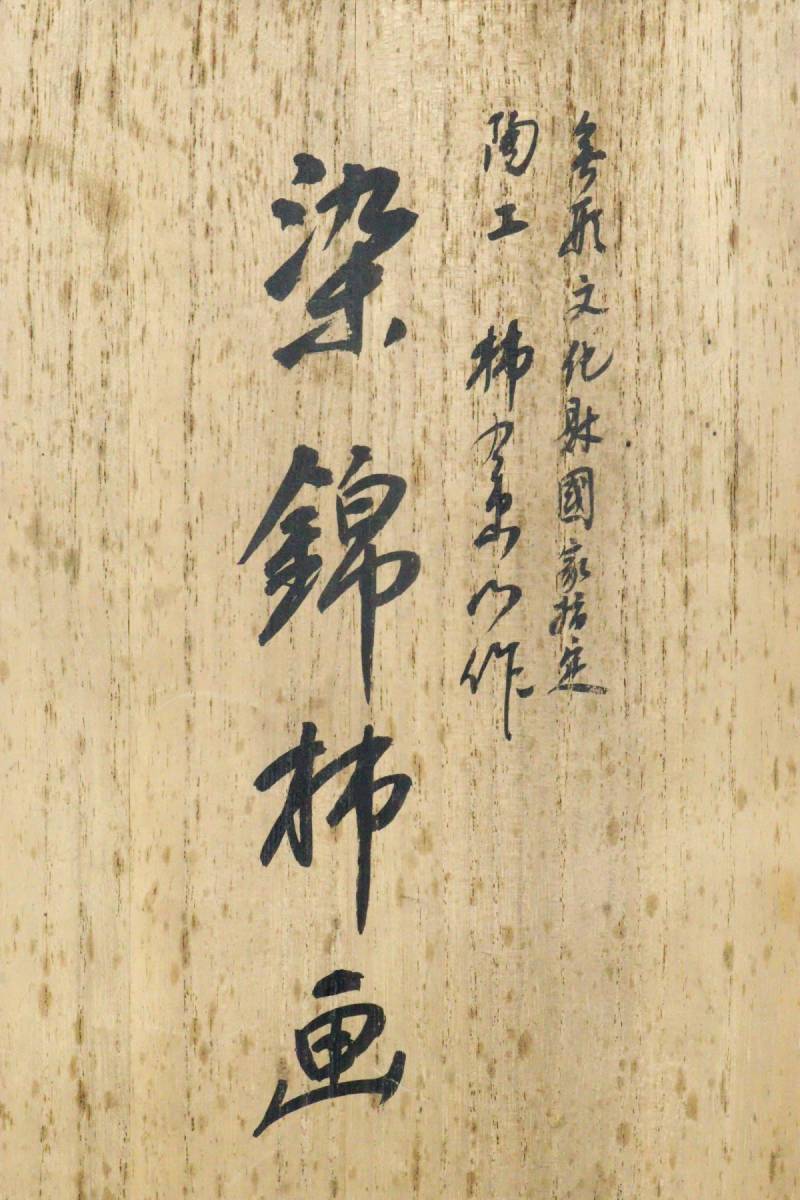 無形文化財國家指定
陶工 柿右衛門作
染錦柿画